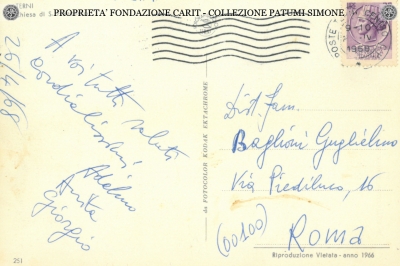 PROPRIETA' FONDAZIONE CARIT - COLLEZIONE PATUMI SIMONE
TERNI
Chiesa di S.
26/4/68
A voi tutti saluti
cordialissimi
Adelmo
Anita
Giorgio
da FOTOCOLOR KODAK EKTACHROME
POSTE
9-1
IV
1968
Dist. Fam.
Baglioni Guglielmo
Via Piediluco, 16
(00100)
Roma
Riproduzione Vietata - anno 1966
251